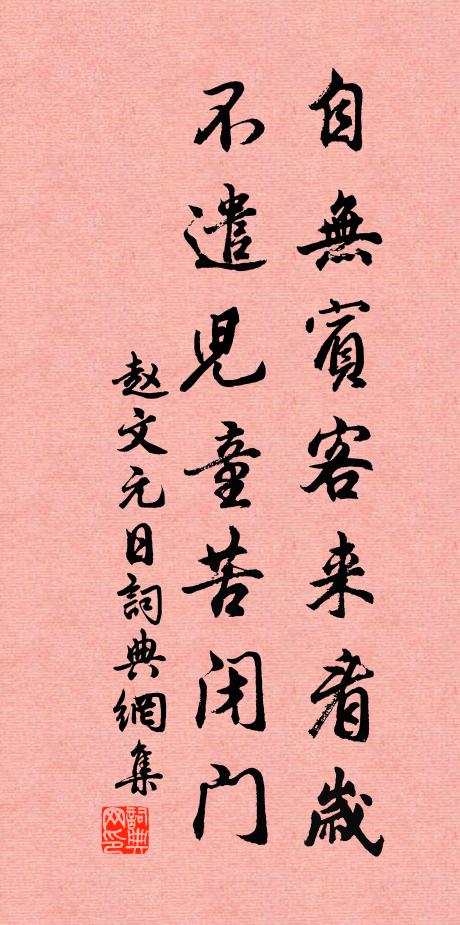 自無賓客来看歲
不遣児童苦閉門
赵文元日詞典網集
詞典网印